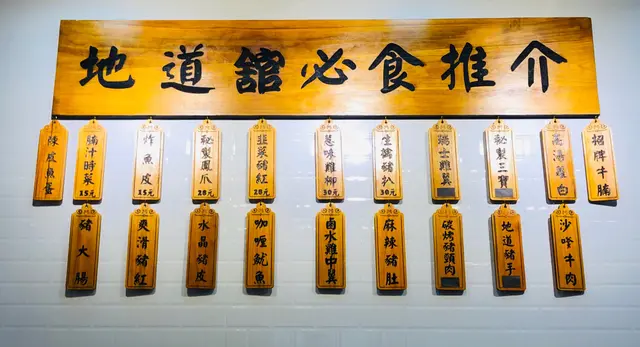 地道舘必食推介
陳皮魚蛋
腩汁時菜
15元
炸魚皮
15元
秘製鳳爪
28元
韭菜豬紅
28元
蔥味雞柳
30元
豬扒
30元
瑞士雞翼
秘製三寶
招牌牛腩
豬大腸
爽滑豬紅
水晶豬皮
咖喱魷魚
鹵水雞中翼
麻辣豬肚
碳烤豬頸肉
地道豬手
沙嗲牛肉